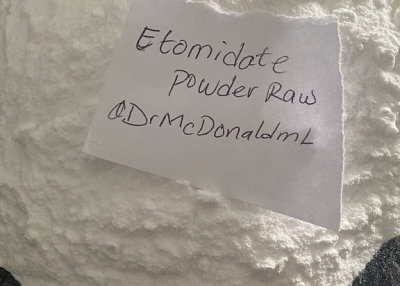 Etomidate
Powder Raw
@DrMcDonaldmL